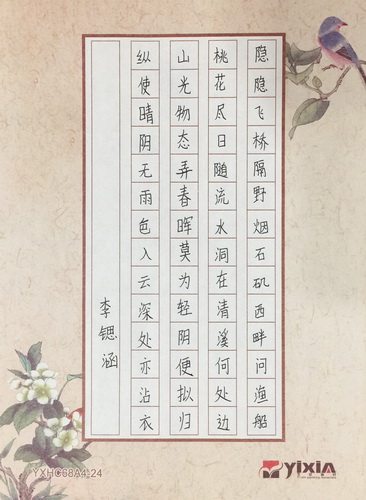 隐隐飞桥隔野烟石矶西畔问渔船
桃花尽日随流水洞在清溪何处边
山光物态弄春晖莫为轻阴便拟归
纵使晴阴无雨色入云深处亦沾衣
李锶涵
YXHC68A4-24
yixin